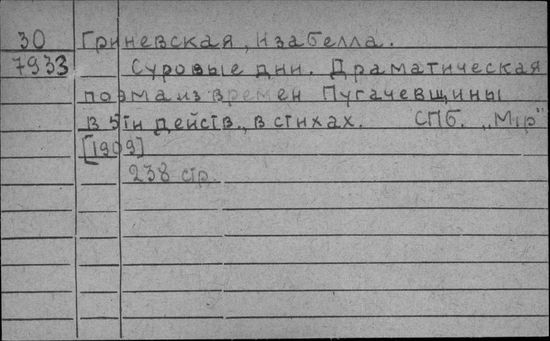 30 Гриневская, Изабелла.
7933 Суровые дни. Драматическая
поэма из времен Пугачевщины
в 5ти действ., в стихах. СПб. „Мiр"
[1909]
238 стр.